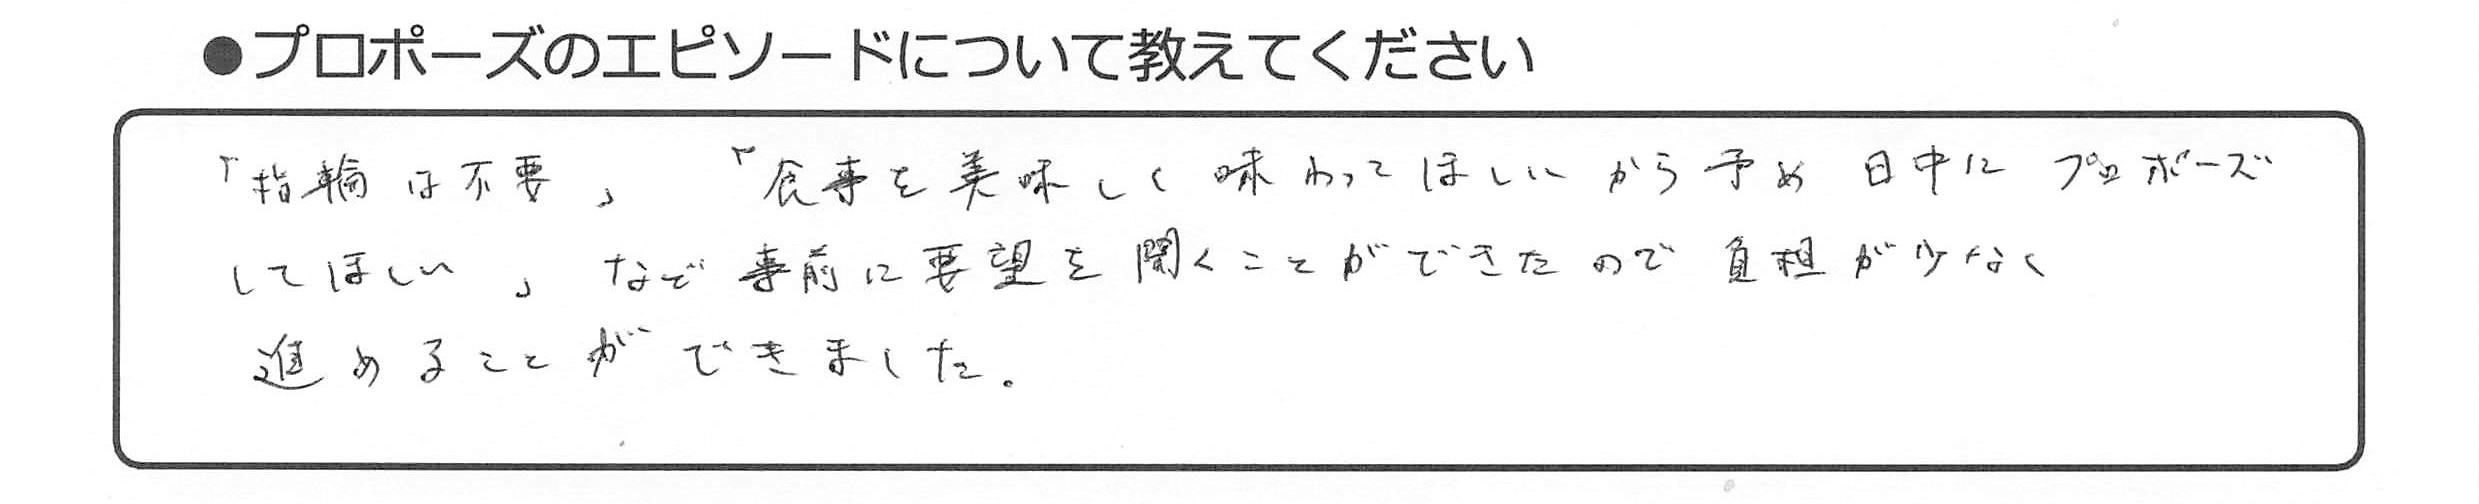 ●プロポーズのエピソードについて教えてください
「指輪は不要」 「食事を美味しく味わってほしいから予め日中にプロポーズ
してほしい」など事前に要望を聞くことができたので負担が少なく
進めることができました。